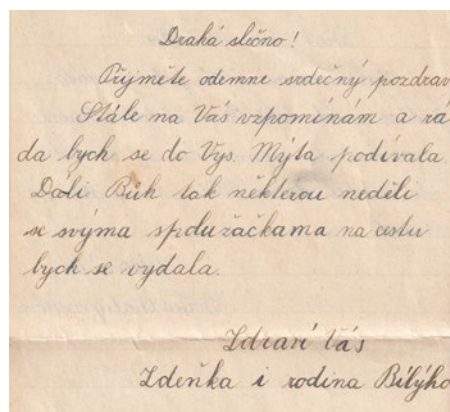 Drahá slečno!
Přijměte odemne srdečný pozdrav
Stále na Vás vzpomínám a rá
da bych se do Vys. Mýta podívala.
Dáli Bůh tak některou neděli
se svýma spolužačkama na cestu
bych se vydala.
Zdraví Vás
Zdeňka i rodina Bílýho